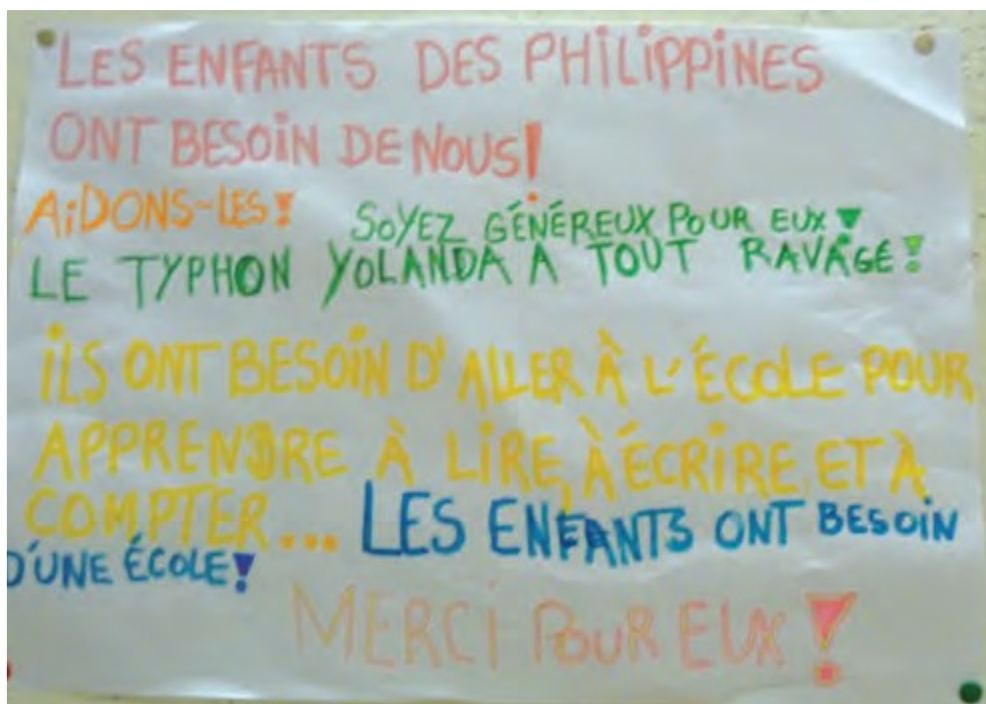 LES ENFANTS DES PHILIPPINES
ONT BESOIN DE NOUS!
AIDONS-LES! SOYEZ GÉNÉREUX POUR EUX!
LE TYPHON YOLANDA A TOUT RAVAGÉ!
ILS ONT BESOIN D'ALLER À L'ÉCOLE POUR
APPRENDRE À LIRE, À ÉCRIRE, ET À
COMPTER... LES ENFANTS ONT BESOIN
D'UNE ÉCOLE!
MERCI POUR EUX!